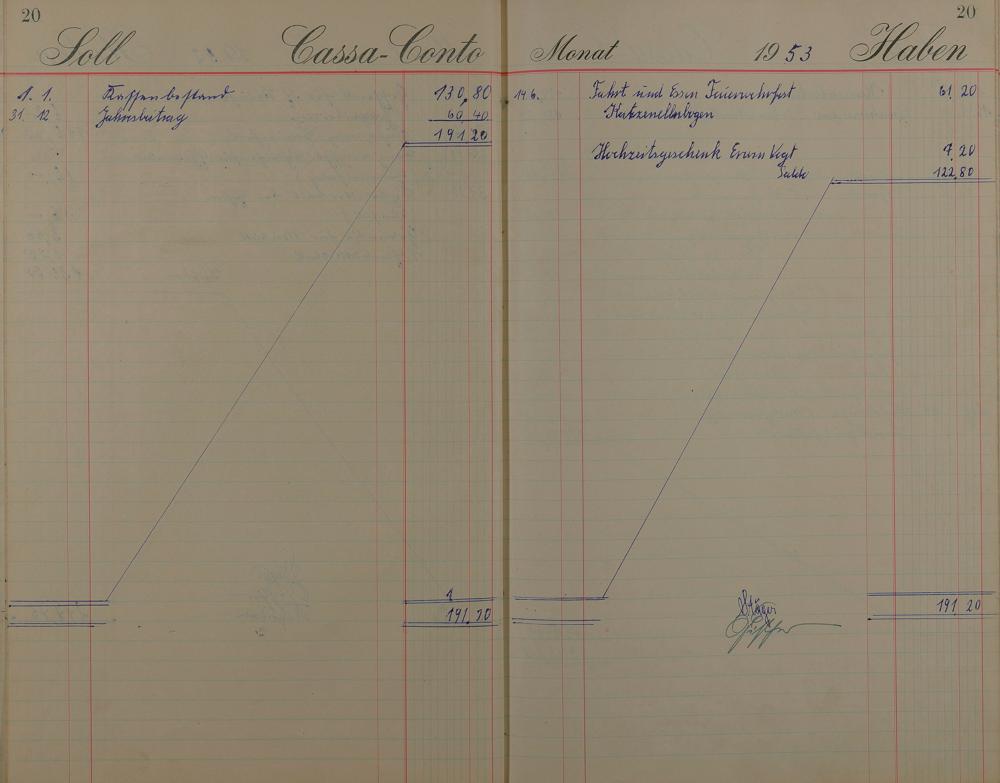 20
Soll Cassa-Conto
1. 1. Kassenbestand 130,80
31. 12 Jahresbeitrag 60 40
191 20
191,20
20
Monat 1953 Haben
14.6. Fahrt und Essen Feuerwehrfest 61,20
Katzenellnbogen
Hochzeitsgeschenk Erwin Vogt 7.20
Saldo 122,80
191,20